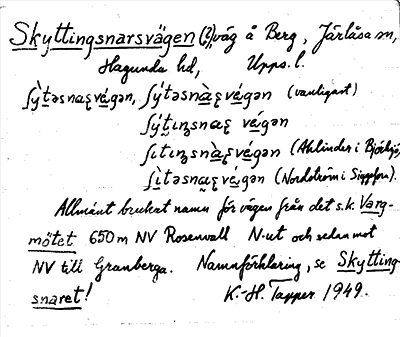 Skyttingsnarsvägen (?), väg å Berg, Järlåsa sn,
Hagunda hd, Upps. l.
ʃy̍təsnaʂvégən, ʃýtəsnàʂvégən (vanligast)
ʃýtɪŋsnaʂ végən
ʃɩtɩŋsnàʂvégən (Ahlinder i Björksjö)
ʃìtəsnaʂvégən (Nordström i Siggefora).
Allmänt brukat namn för vägen från det s.k. Varg-
mötet 650 m NV Rosenvall N-ut och sedan mot
NV till Granberga. Namnförklaring, se Skytting-
snaret! K.-H. Tapper 1949.